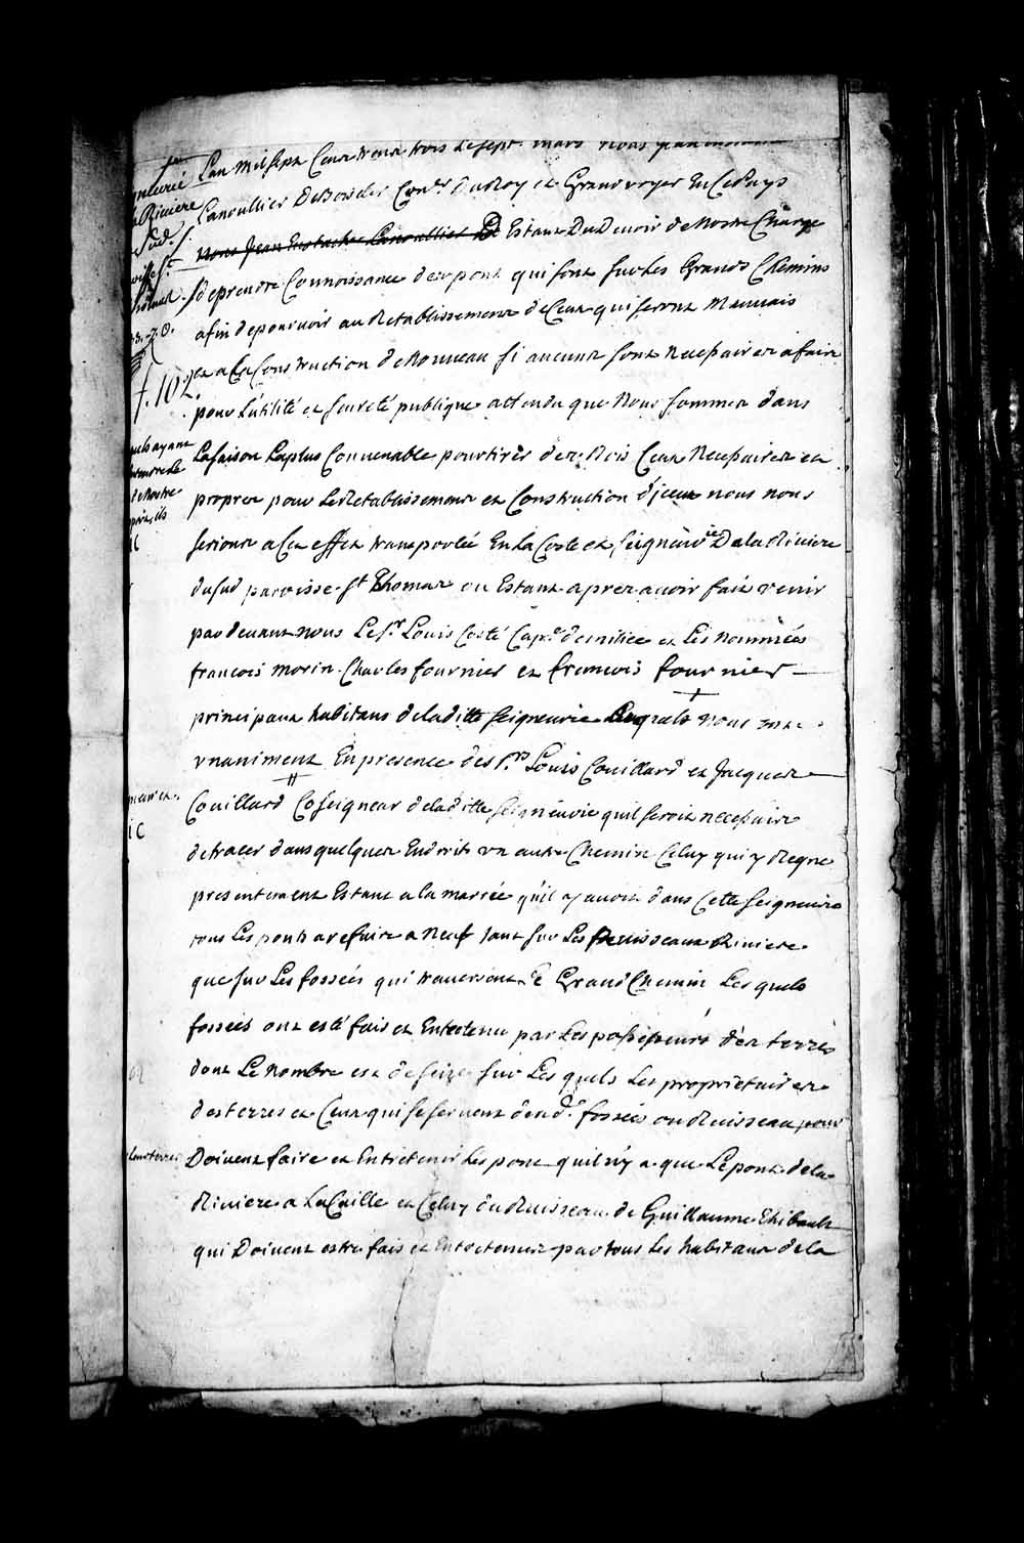 gneurie
la Riviere
Sud.
roisse St
homas
33. 70.
f. 102.
L'an mil sept Cent trente trois Le sept mars nous Jean
Lanoullier De Boisclerc Conser du Roy et Grand voyer En Ce Pays
nous Jean Eustache Lanoullier De Estant Du Devoir de Nostre Charge
de prendre Connoissance des pont qui sont sur Les Grands Chemins
afin de pourvoir au Retablissement de Ceux qui seront Mauvais
et a La Construction de Nouveau si aucuns sont Necessaires a faire
pour L'utilité et seureté publique attendu que Nous sommes dans
La saison La plus Convenable pour tirer des Bois Ceux Necessaires et
propres pour Les Retablissement et Construction d'jceux nous nous
serions a Cet effet transportés En La Coste et seigneurie De la Riviere
du Sud paroisse St Thomas ou Estant apres avoir fait venir
par devant nous Le Sr Louis Costé Cap.e de milice et Les nommées
francois Morin Charles fournier et francois fournier
principaux habitans de la ditte seigneurie Lesquels nous ont
vnaniment En presence des Srs Louis Couillard et Jacques
Couillard Coseigneur de la ditte seigneurie quil seroit necessaire
de tracer dans quelques Endroits vn autre Chemin Celuy qui y Regne
presentement Estant a la marrée qu'il y avoit dans Cette seigneurie
tous Les ponts a refaire a Neuf tant sur Les Ruisseaux Riviere
que sur Les fossées qui traversent Le Grand Chemin Les quels
fossées ont esté fais et Entretenu par Les possesseurs des terres
dont Le Nombre est de seize sur Les quels Les proprietaires
des terres et Ceux qui se servent desd. fossées ou Ruisseau pour
leurs terres Doivent faire et Entretenir Les pont quil n'y a que Le pont de la
Riviere a La Caille et Celuy du Ruisseau de Guillaume Thibault
qui Doivent estre fais et Entretenus par tous Les habitans de la